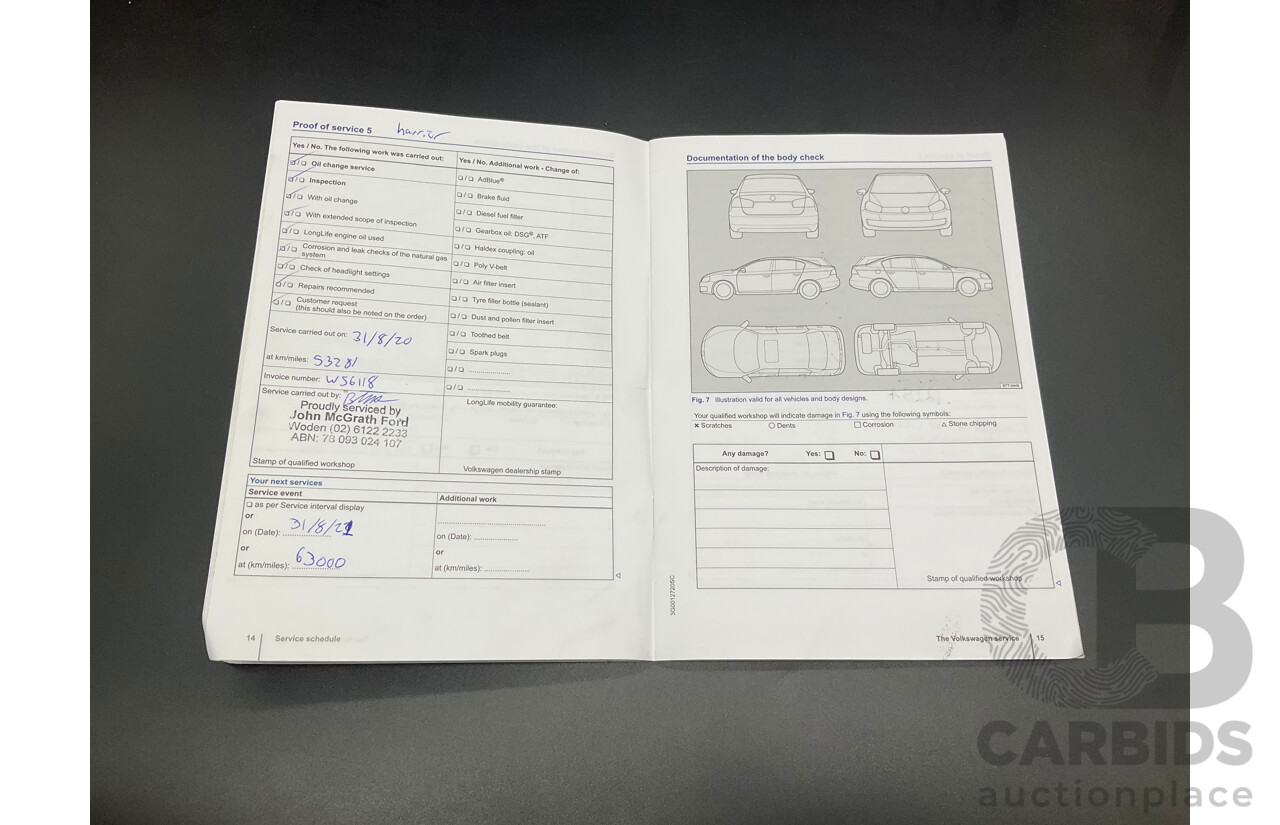 Proof of service 5
Yes / No. The following work was carried out:
Yes / No. Additional work - Change of:
❑ / ❑ Oil change service
❑ / ❑ Inspection
❑ / ❑ With oil change
❑ / ❑ With extended scope of inspection
❑ / ❑ LongLife engine oil used
❑ / ❑ Corrosion and leak checks of the natural gas
system
❑ / ❑ Check of headlight settings
❑ / ❑ Repairs recommended
❑ / ❑ Customer request
(this should also be noted on the order)
Service carried out on: 31/8/20
at km/miles: 53281
Invoice number: W56118
Service carried out by:
Proudly serviced by
John McGrath Ford
Woden (02) 6122 2233
ABN: 78 093 024 107
Stamp of qualified workshop
❑ / ❑ AdBlue®
❑ / ❑ Brake fluid
❑ / ❑ Diesel fuel filter
❑ / ❑ Gearbox oil: DSG®, ATF
❑ / ❑ Haldex coupling: oil
❑ / ❑ Poly V-belt
❑ / ❑ Air filter insert
❑ / ❑ Tyre filler bottle (sealant)
❑ / ❑ Dust and pollen filter insert
❑ / ❑ Toothed belt
❑ / ❑ Spark plugs
❑ / ❑ ....................
❑ / ❑ ....................
LongLife mobility guarantee:
Volkswagen dealership stamp
Your next services
Service event
❑ as per Service interval display
or
on (Date): 31/8/21
or
at (km/miles): 63000
Additional work
on (Date): ....................
or
at (km/miles): ....................
14 Service schedule
Documentation of the body check
Fig. 7 Illustration valid for all vehicles and body designs.
Your qualified workshop will indicate damage in Fig. 7 using the following symbols:
✕ Scratches ○ Dents □ Corrosion △ Stone chipping
Any damage? Yes: ❑ No: ❑
Description of damage:
Stamp of qualified workshop
3G0012720SC
The Volkswagen service 15
CB
CARBIDS
auctionplace